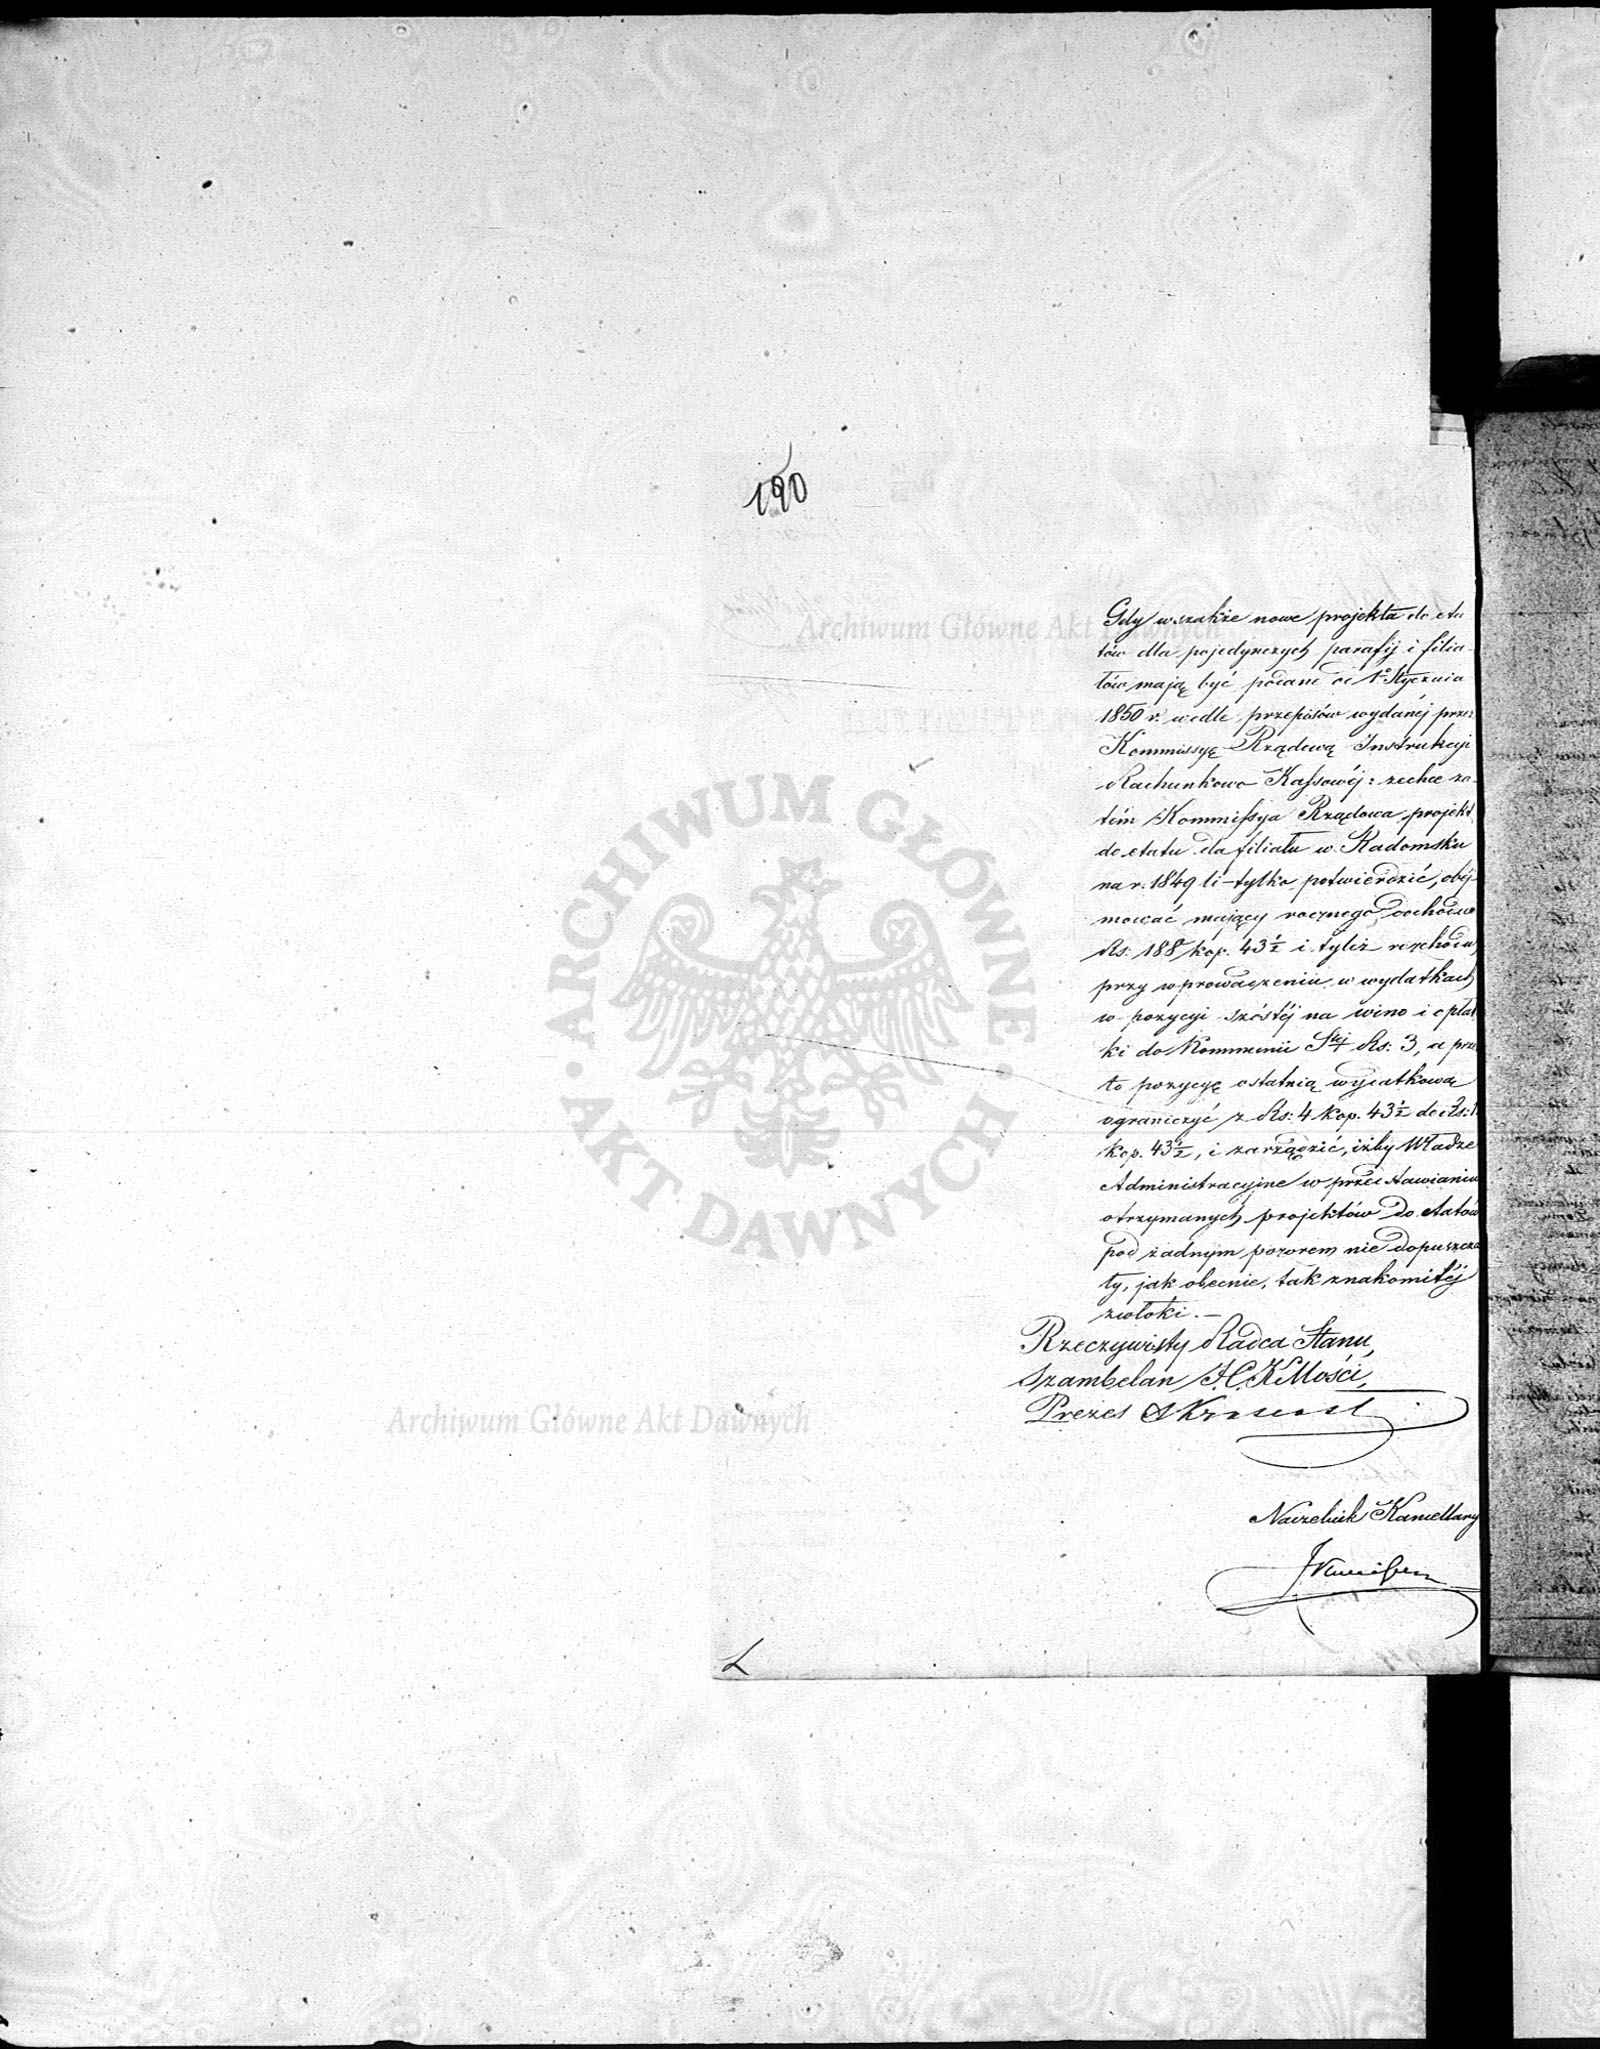 190
Gdy wszakże nowe projekta do eta
tów dla pojedynczych parafij i filia-
łów mają być podane od 1º Stycznia
1850 r. wedle przepisów wydanéj przez
Kommissyę Rządową Instrukcyi
Rachunkowo Kassowéj: zechce za-
tém Kommissya Rządowa, projekt
do etatu dla filiału w Radomsku
na r. 1849 li-tylko potwierdzić, obéj-
mować mający rocznego dochodu
Rs. 188 kop. 43½ i tyleż rozchodu,
przy wprowadzeniu w wydatkach
w pozycyi szóstéj na wino i opłat
ki do Kommunii Stéj Rs: 3, a prze
to pozycyę ostatnią wydatkową
ograniczyć z Rs: 4 kop. 43½ do Rs: 1
kop. 43½, i zarządzić, iżby Władze
Administracyjne w przedstawianiu
otrzymanych projektów do etatów
pod żadnym pozorem nie dopuszcza
ły, jak obecnie, tak znakomitéj
zwłoki. —
Rzeczywisty Radca Stanu,
Szambelan J.C.K Mości,
Prezes
Naczelnik Kancellary
ARCHIWUM GŁÓWNE
AKT DAWNYCH
Archiwum Główne Akt Dawnych
Archiwum Główne Akt Dawnych